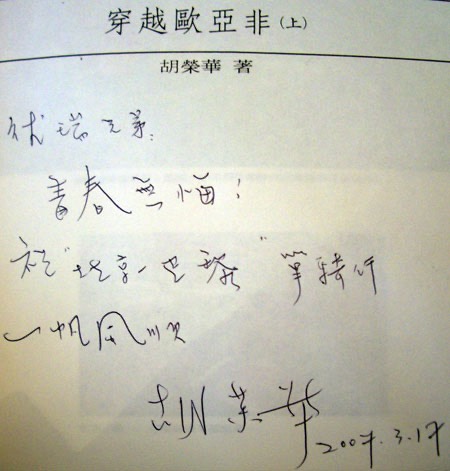 穿越歐亞非(上)
胡榮華 著
瑞兄弟:
青春無悔!
祝"北京—巴黎"單騎行
一帆風順
胡榮華 2007.3.17